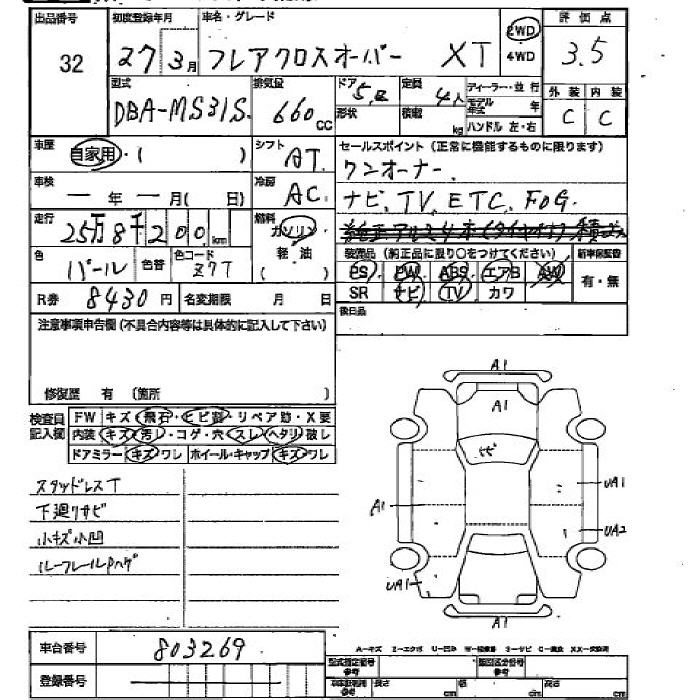 出品番号 32
初度登録年月 27年3月
車名・グレード フレアクロスオーバー XT
2WD
4WD
評価点 3.5
外装 C
内装 C
型式 DBA-MS31S
排気量 660 CC
ドア 5
形状
定員 4人
積載 kg
ディーラー・並行
モデル年式 年
ハンドル 左・右
車歴 自家用・( )
シフト AT
セールスポイント (正常に機能するものに限ります)
ワンオーナー、
ナビ、TV、ETC、FOG
車検 ー年ー月( 日)
冷房 AC
走行 25万8千200km
燃料 ガソリン
軽油
( )
色 パール
色替
色コード Z7T
装備品 (純正品に限り○をつけてください)
PS PW ABS エアB AW
SR ナビ TV カワ
新車保証書
有・無
R券 8430円
名変期限 月 日
後日品
注意事項申告欄(不具合内容等は具体的に記入して下さい)
修復歴 有 (箇所 )
検査員記入欄
FW キズ・飛石・ヒビ割・リペア跡・X要
内装 キズ・汚し・コゲ・穴・スレ・ヘタリ・破し
ドアミラー キズ・ワレ ホイール・キャップ キズ・ワレ
スタッドレスT
下廻りサビ
小キズ小凹
ルーフレールPハゲ
A1
A1
ヒビ
A1
UA1
UA2
UA1
A1
車台番号 803269
登録番号
A−キズ
型式指定番号 参考
類別区分番号 参考
車体記載用 参考
長さ cm
幅 cm
高さ cm